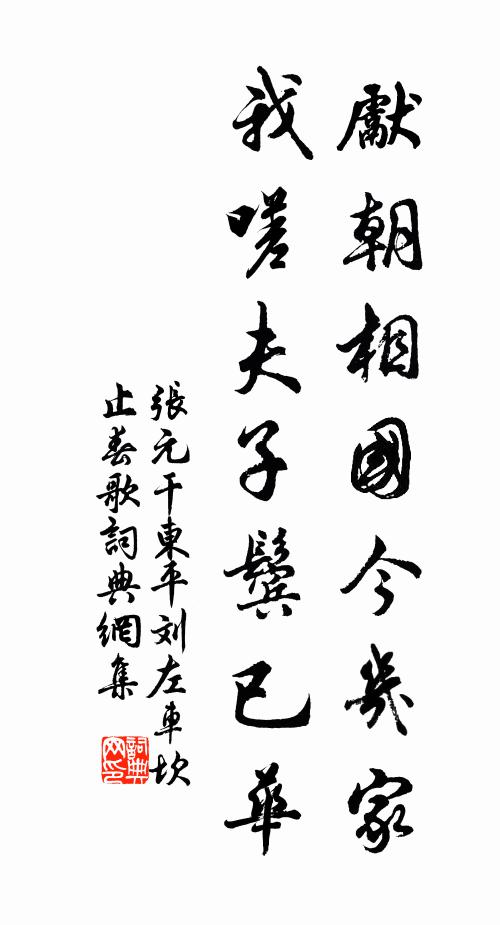 獻朝相國今幾家
我嗟夫子鬢已華
張元干東平刘左車坎
止春歌詞典網集
詞典網印